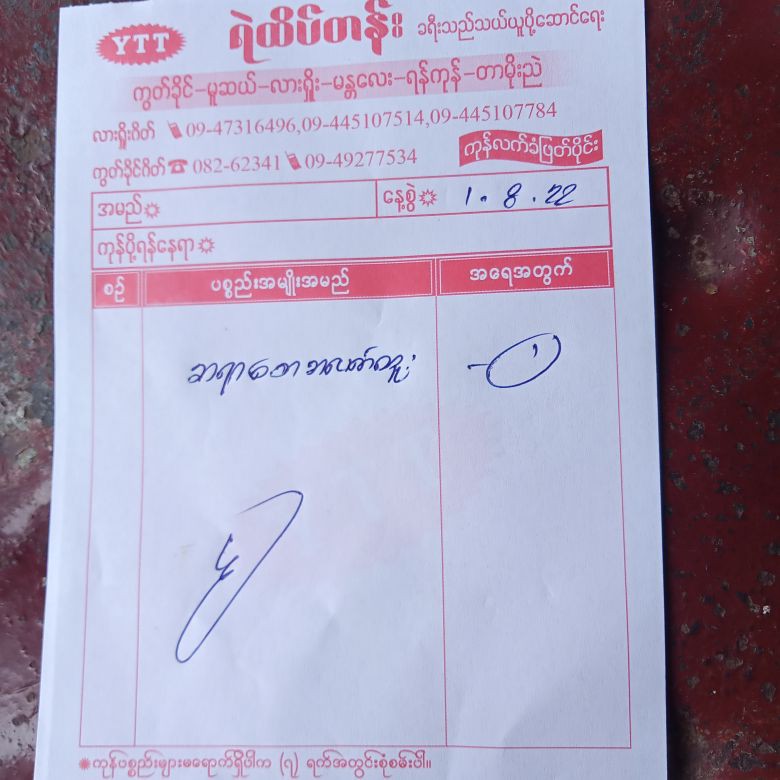 YTT ရဲထိပ်တန်း ခရီးသည်သယ်ယူပို့ဆောင်ရေး
ကွတ်ခိုင်-မူဆယ်-လားရှိုး-မန္တလေး-ရန်ကုန်-တာမိုးညဲ
လားရှိုးဂိတ် 09-47316496,09-445107514,09-445107784
ကွတ်ခိုင်ဂိတ် 082-62341 09-49277534 ကုန်လက်ခံဖြတ်ပိုင်း
အမည် နေ့စွဲ 1.8.22
ကုန်ပို့ရန်နေရာ
စဉ် ပစ္စည်းအမျိုးအမည် အရေအတွက်
ကုန်ပစ္စည်းများမရောက်ရှိပါက (၇) ရက်အတွင်းစုံစမ်းပါ။